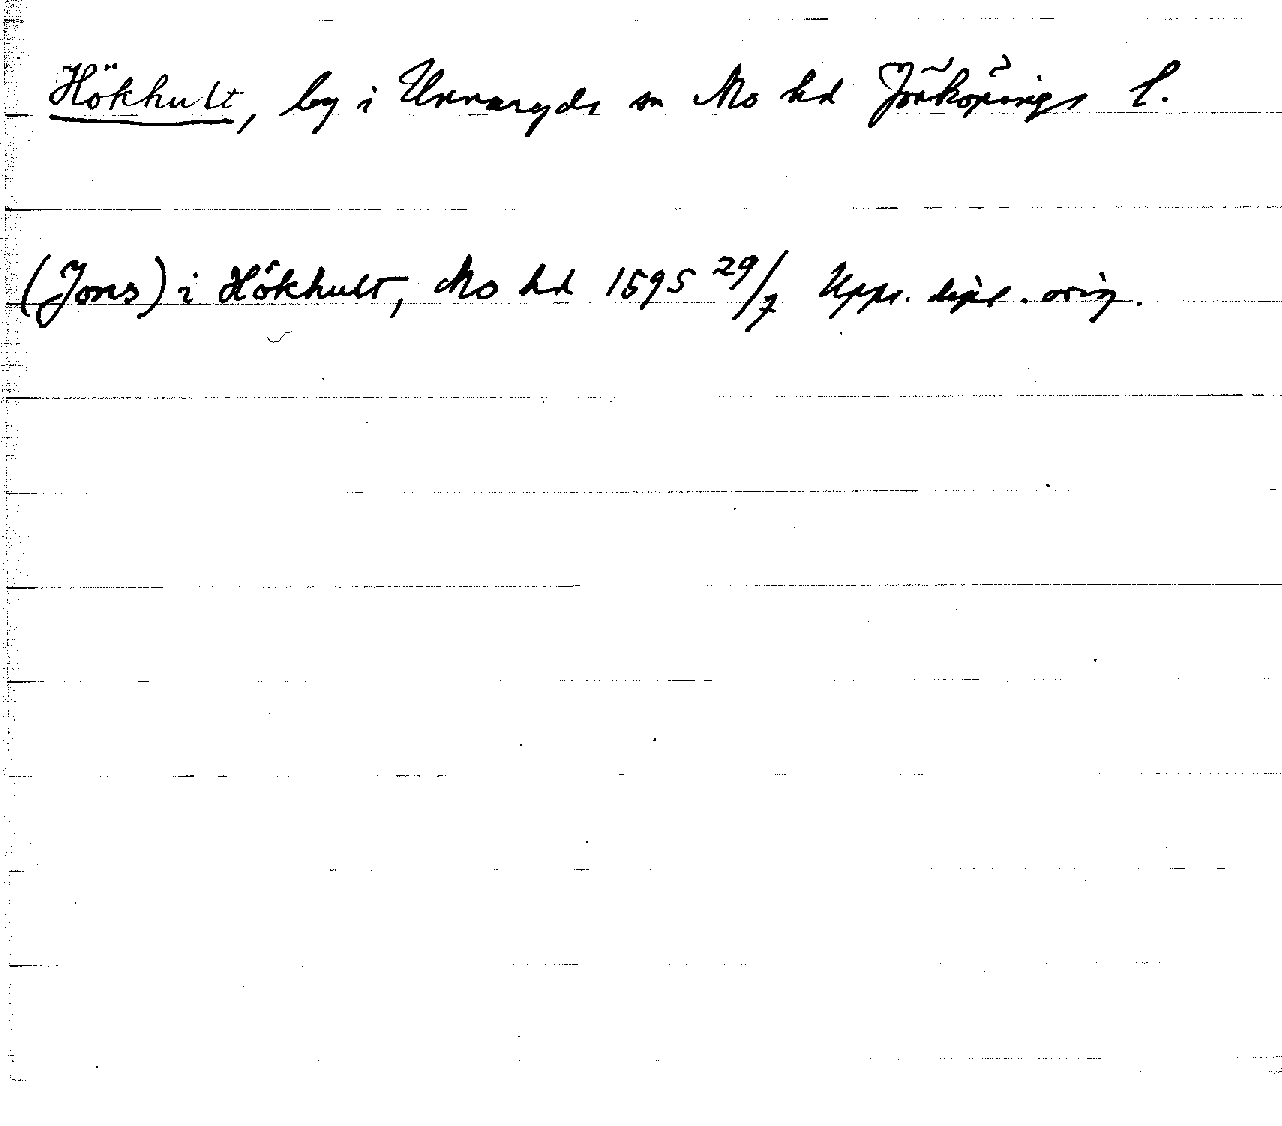 Hökhult, by i Unnaryds sn Mo hd Jönköpings l.
(Jons) i Hökhult, Mo hd 1595 29/7 Upps. dipl. orig.